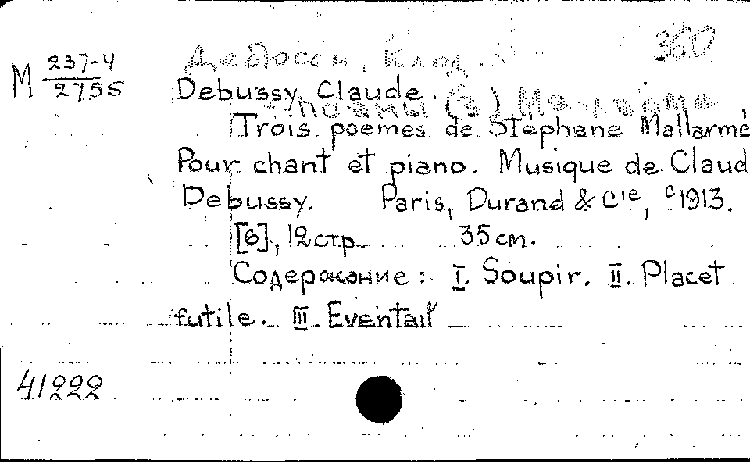 Дебюсси, Клод.
380
М 237-4
2755
Debussy, Claude.
Поэмы (3) Малларме
Trois poemes de Stephane Mallarmé
Pour chant et piano. Musique de Claud
Debussy. Paris, Durand & Cie, c1913.
[6], 12 стр. 35 cm.
Содержание: I. Soupir. II. Placet
futile. III. Eventail
41222